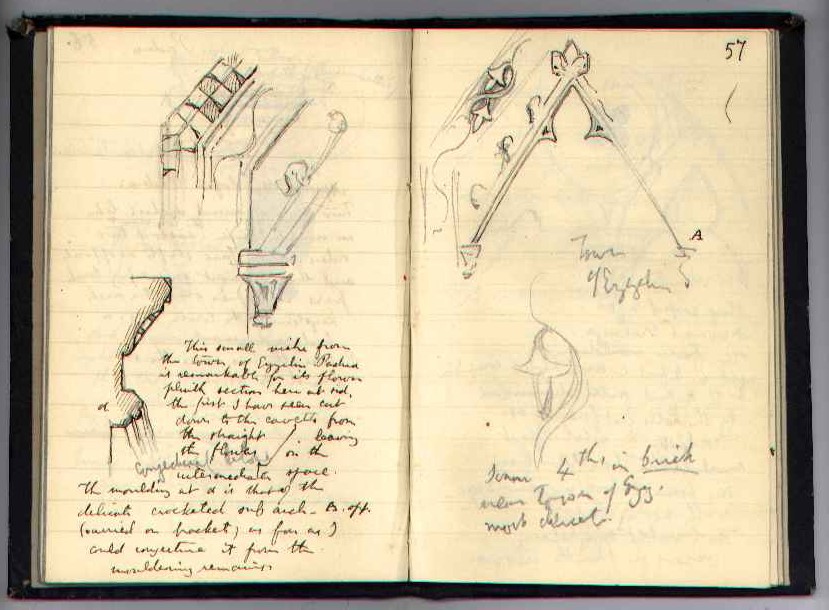 This small niche from
the tower of Ezzelin Padua
is remarkable for its flower
plinth section here at sid.
the first I have seen cut
down to the cavetto from
the straight leaving
the flowers on the
conjectural
intermediate space.
The moulding at d is that of the
delicate crocketed sub arch - B. opp.
(carried on bracket) as far as I
could conjecture it from the
mouldering remains
d
57
A
Tower
of Ezzelin
4ths in brick
near Tower of Ezz.
most delicate.